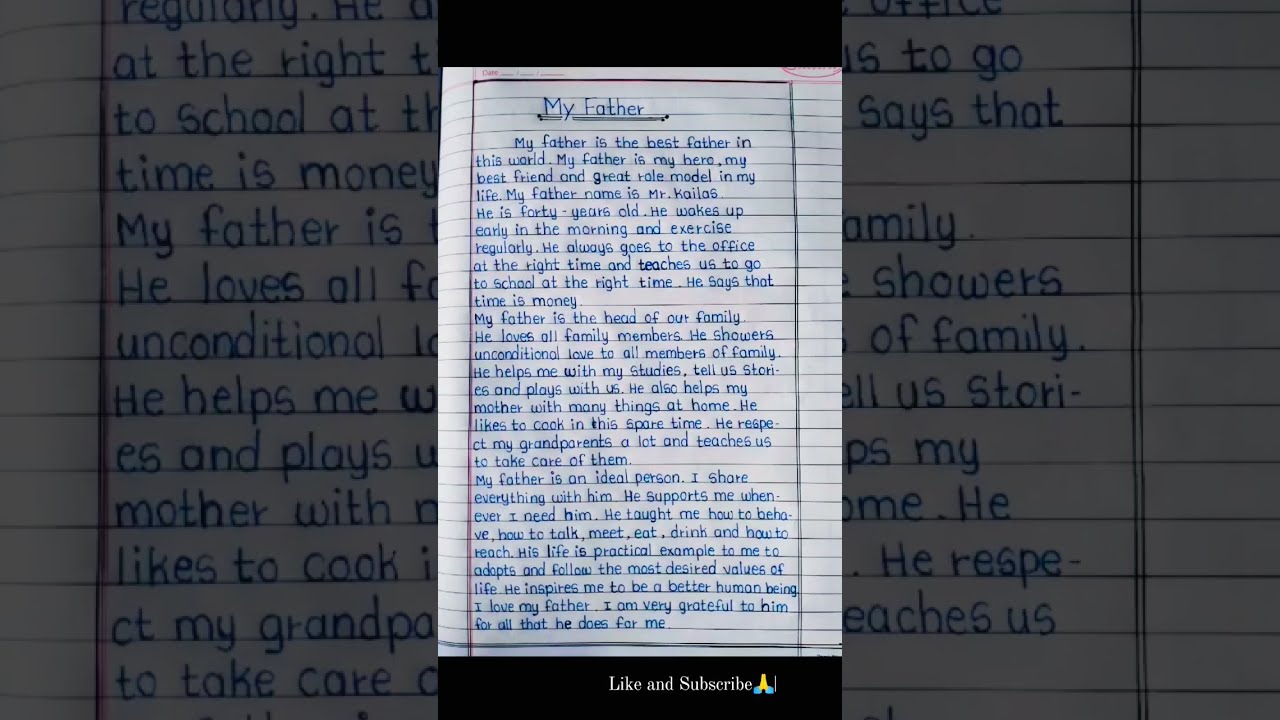 Date
My Father
My father is the best father in
this world. My father is my hero, my
best friend and great role model in my
life. My father name is Mr. Kailas.
He is forty-years old. He wakes up
early in the morning and exercise
regularly. He always goes to the office
at the right time and teaches us to go
to school at the right time. He says that
time is money.
My father is the head of our family.
He loves all family members. He showers
unconditional love to all members of family.
He helps me with my studies, tell us stori-
es and plays with us. He also helps my
mother with many things at home. He
likes to cook in this spare time. He respe-
ct my grandparents a lot and teaches us
to take care of them.
My father is an ideal person. I share
everything with him. He supports me when-
ever I need him. He taught me how to beha-
ve, how to talk, meet, eat, drink and how to
reach. His life is practical example to me to
adopts and follow the most desired values of
life. He inspires me to be a better human being.
I love my father. I am very grateful to him
for all that he does for me.
Like and Subscribe🙏